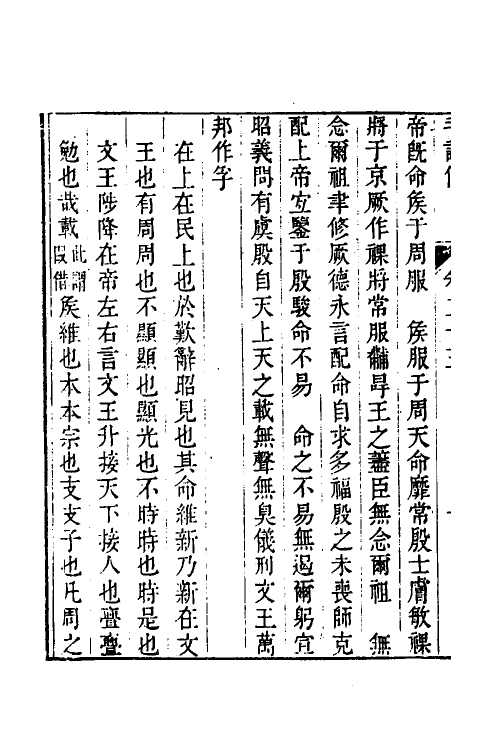 帝旣命矦于周服　矦服于周天命靡常殷士膚敏祼
將于京厥作祼將常服黼冔王之藎臣無念爾祖　無
念爾祖聿修厥德永言配命自求多福殷之未喪師克
配上帝宐鑒于殷駿命不易　命之不易無遏爾躬宣
昭義問有虞殷自天上天之載無聲無臭儀刑文王萬
邦作孚
在上在民上也於歎辭昭見也其命維新乃新在文
王也有周周也不顯顯也顯光也不時時也時是也
文王陟降在帝左右言文王升接天下接人也亹亹
勉也哉載此謂叚借矦維也本本宗也支支子也凡周之